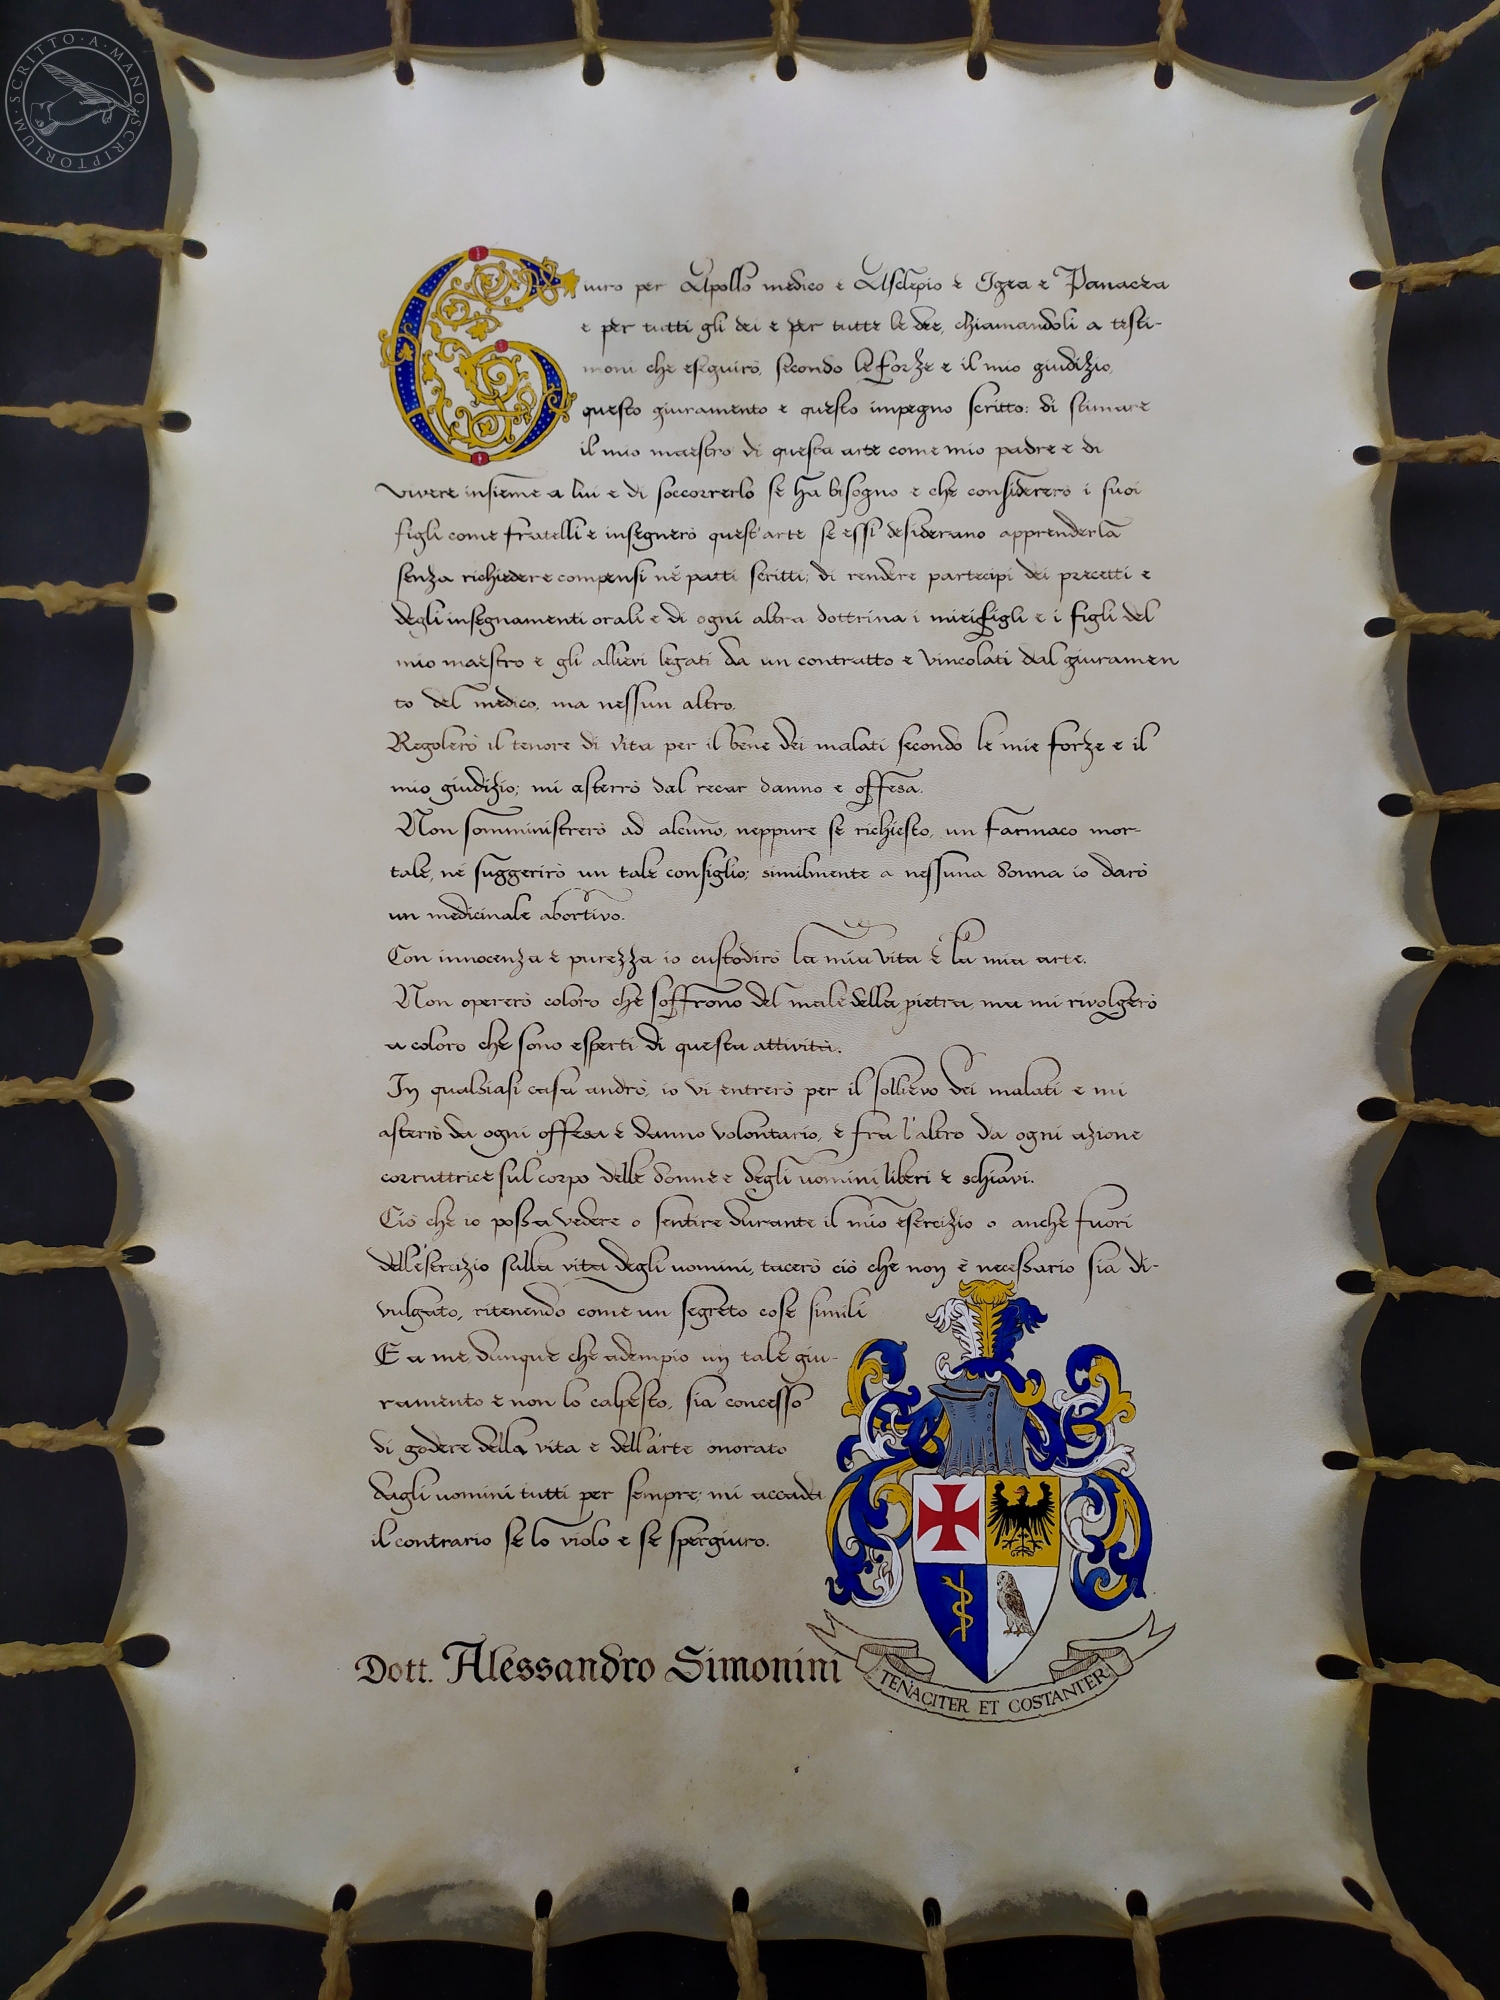 SCRITTO · A · MANO · SCRIPTORIUM ·
Giuro per Apollo medico e Asclepio e Igea e Panacea
e per tutti gli dei e per tutte le dee, chiamandoli a testi-
moni che eseguirò, secondo le forze e il mio giudizio,
questo giuramento e questo impegno scritto: di stimare
il mio maestro di questa arte come mio padre e di
vivere insieme a lui e di soccorrerlo se ha bisogno e che considererò i suoi
figli come fratelli e insegnerò quest'arte se essi desiderano apprenderla
senza richiedere compensi né patti scritti; di rendere partecipi dei precetti e
degli insegnamenti orali e di ogni altra dottrina i miei figli e i figli del
mio maestro e gli allievi legati da un contratto e vincolati dal giuramen
to del medico, ma nessun altro.
Regolerò il tenore di vita per il bene dei malati secondo le mie forze e il
mio giudizio; mi asterrò dal recar danno e offesa.
Non somministrerò ad alcuno, neppure se richiesto, un farmaco mor-
tale, né suggerirò un tale consiglio; similmente a nessuna donna io darò
un medicinale abortivo.
Con innocenza e purezza io custodirò la mia vita e la mia arte.
Non opererò coloro che soffrono del male della pietra, ma mi rivolgerò
a coloro che sono esperti di questa attività.
In qualsiasi casa andrò, io vi entrerò per il sollievo dei malati e mi
asterrò da ogni offesa e danno volontario, e fra l'altro da ogni azione
corruttrice sul corpo delle donne e degli uomini, liberi e schiavi.
Ciò che io possa vedere o sentire durante il mio esercizio o anche fuori
dell'esercizio sulla vita degli uomini, tacerò ciò che non è necessario sia di-
vulgato, ritenendo come un segreto cose simili
E a me, dunque che adempio un tale giu-
ramento e non lo calpesto, sia concesso
di godere della vita e dell'arte onorato
dagli uomini tutti per sempre; mi accada
il contrario se lo violo e se spergiuro.
Dott. Alessandro Simonini
TENACITER ET COSTANTER